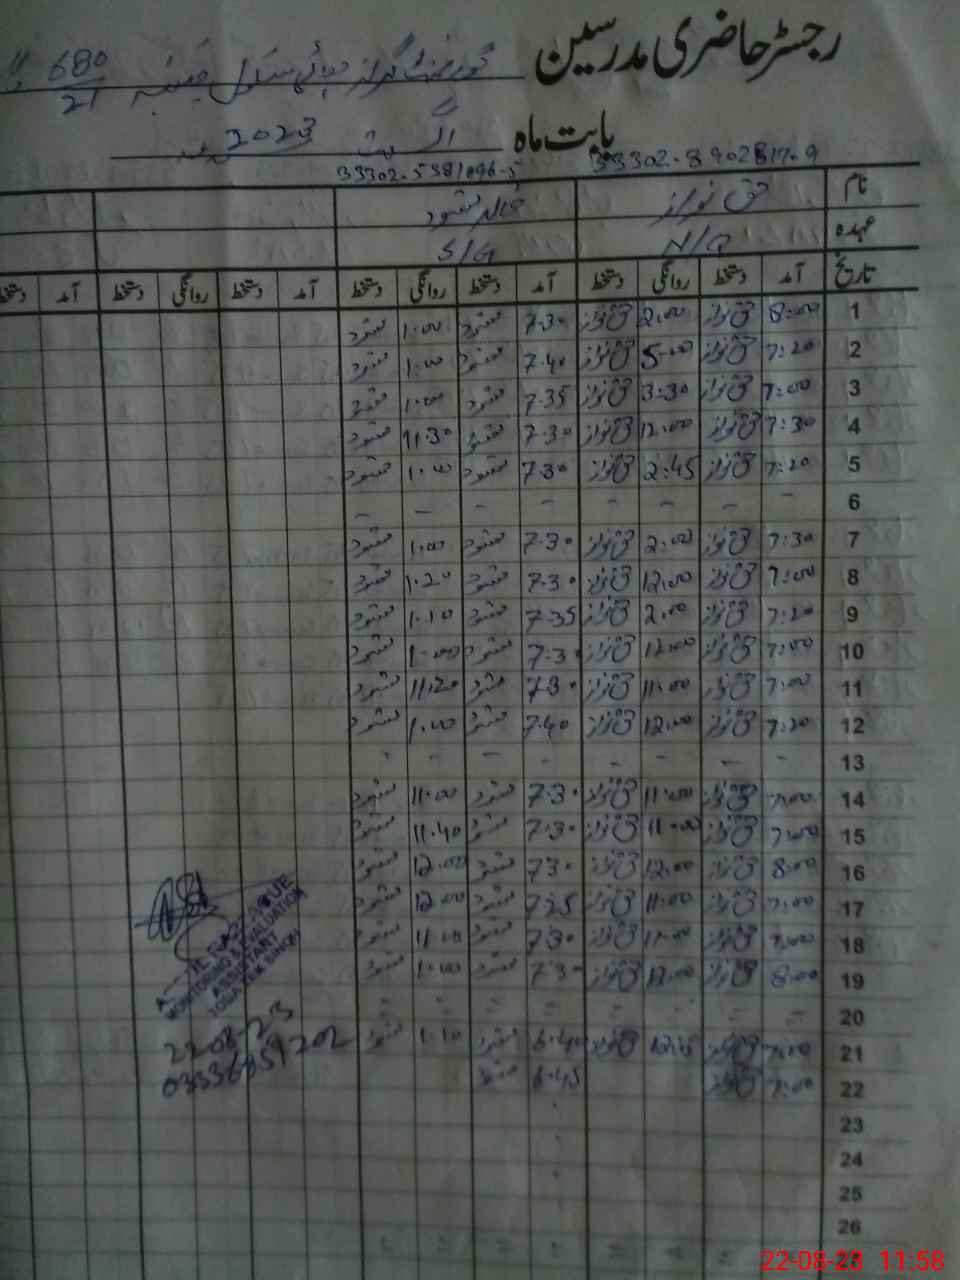 رجسٹر حاضری مدرسین گورنمنٹ گرلز ہائی سکول 680/21
بابت ماہ اگست 2023
33302-8902817-9 33302-5381096-5
نام حق نواز خالد مسعود
عہدہ N/Q S/G
تاریخ آمد دستخط روانگی دستخط آمد دستخط روانگی دستخط آمد دستخط روانگی دستخط آمد دستخط
1 8:00 حق نواز 2:00 حق نواز 7.30 مسعود 1:00 مسعود
2 7:20 حق نواز 5:00 حق نواز 7.40 مسعود 1:00 مسعود
3 7:00 حق نواز 3:30 حق نواز 7.35 مسعود 1:00 مسعود
4 7:30 حق نواز 12:00 حق نواز 7.30 مسعود 11.30 مسعود
5 7:20 حق نواز 2:45 حق نواز 7.30 مسعود 1:00 مسعود
6 - - - - - - - -
7 7:30 حق نواز 2:00 حق نواز 7.30 مسعود 1:00 مسعود
8 7:00 حق نواز 12:00 حق نواز 7.30 مسعود 1.20 مسعود
9 7:20 حق نواز 2:00 حق نواز 7.35 مسعود 1.10 مسعود
10 7:00 حق نواز 12:00 حق نواز 7.30 مسعود 1:00 مسعود
11 7:00 حق نواز 11:00 حق نواز 7.30 مسعود 11.20 مسعود
12 7:20 حق نواز 12:00 حق نواز 7.40 مسعود 1:00 مسعود
13 - - - - - - - -
14 7:00 حق نواز 11:00 حق نواز 7.30 مسعود 11:00 مسعود
15 7:00 حق نواز 11:00 حق نواز 7.30 مسعود 11.40 مسعود
16 8:00 حق نواز 12:00 حق نواز 7.30 مسعود 12:00 مسعود
17 7:00 حق نواز 11:00 حق نواز 7.25 مسعود 12:00 مسعود
18 7:00 حق نواز 11:00 حق نواز 7.30 مسعود 11:00 مسعود
19 8:00 حق نواز 12:00 حق نواز 7.30 مسعود 1:00 مسعود
20
21 7:00 حق نواز حق نواز 6.40 مسعود 1.10 مسعود
22 7:00 حق نواز 6.45 مسعود
23
24
25
26
MONITORING & EVALUATION
ASSISTANT
TOBA TEK SINGH
22-08-23
22-08-23 11:58